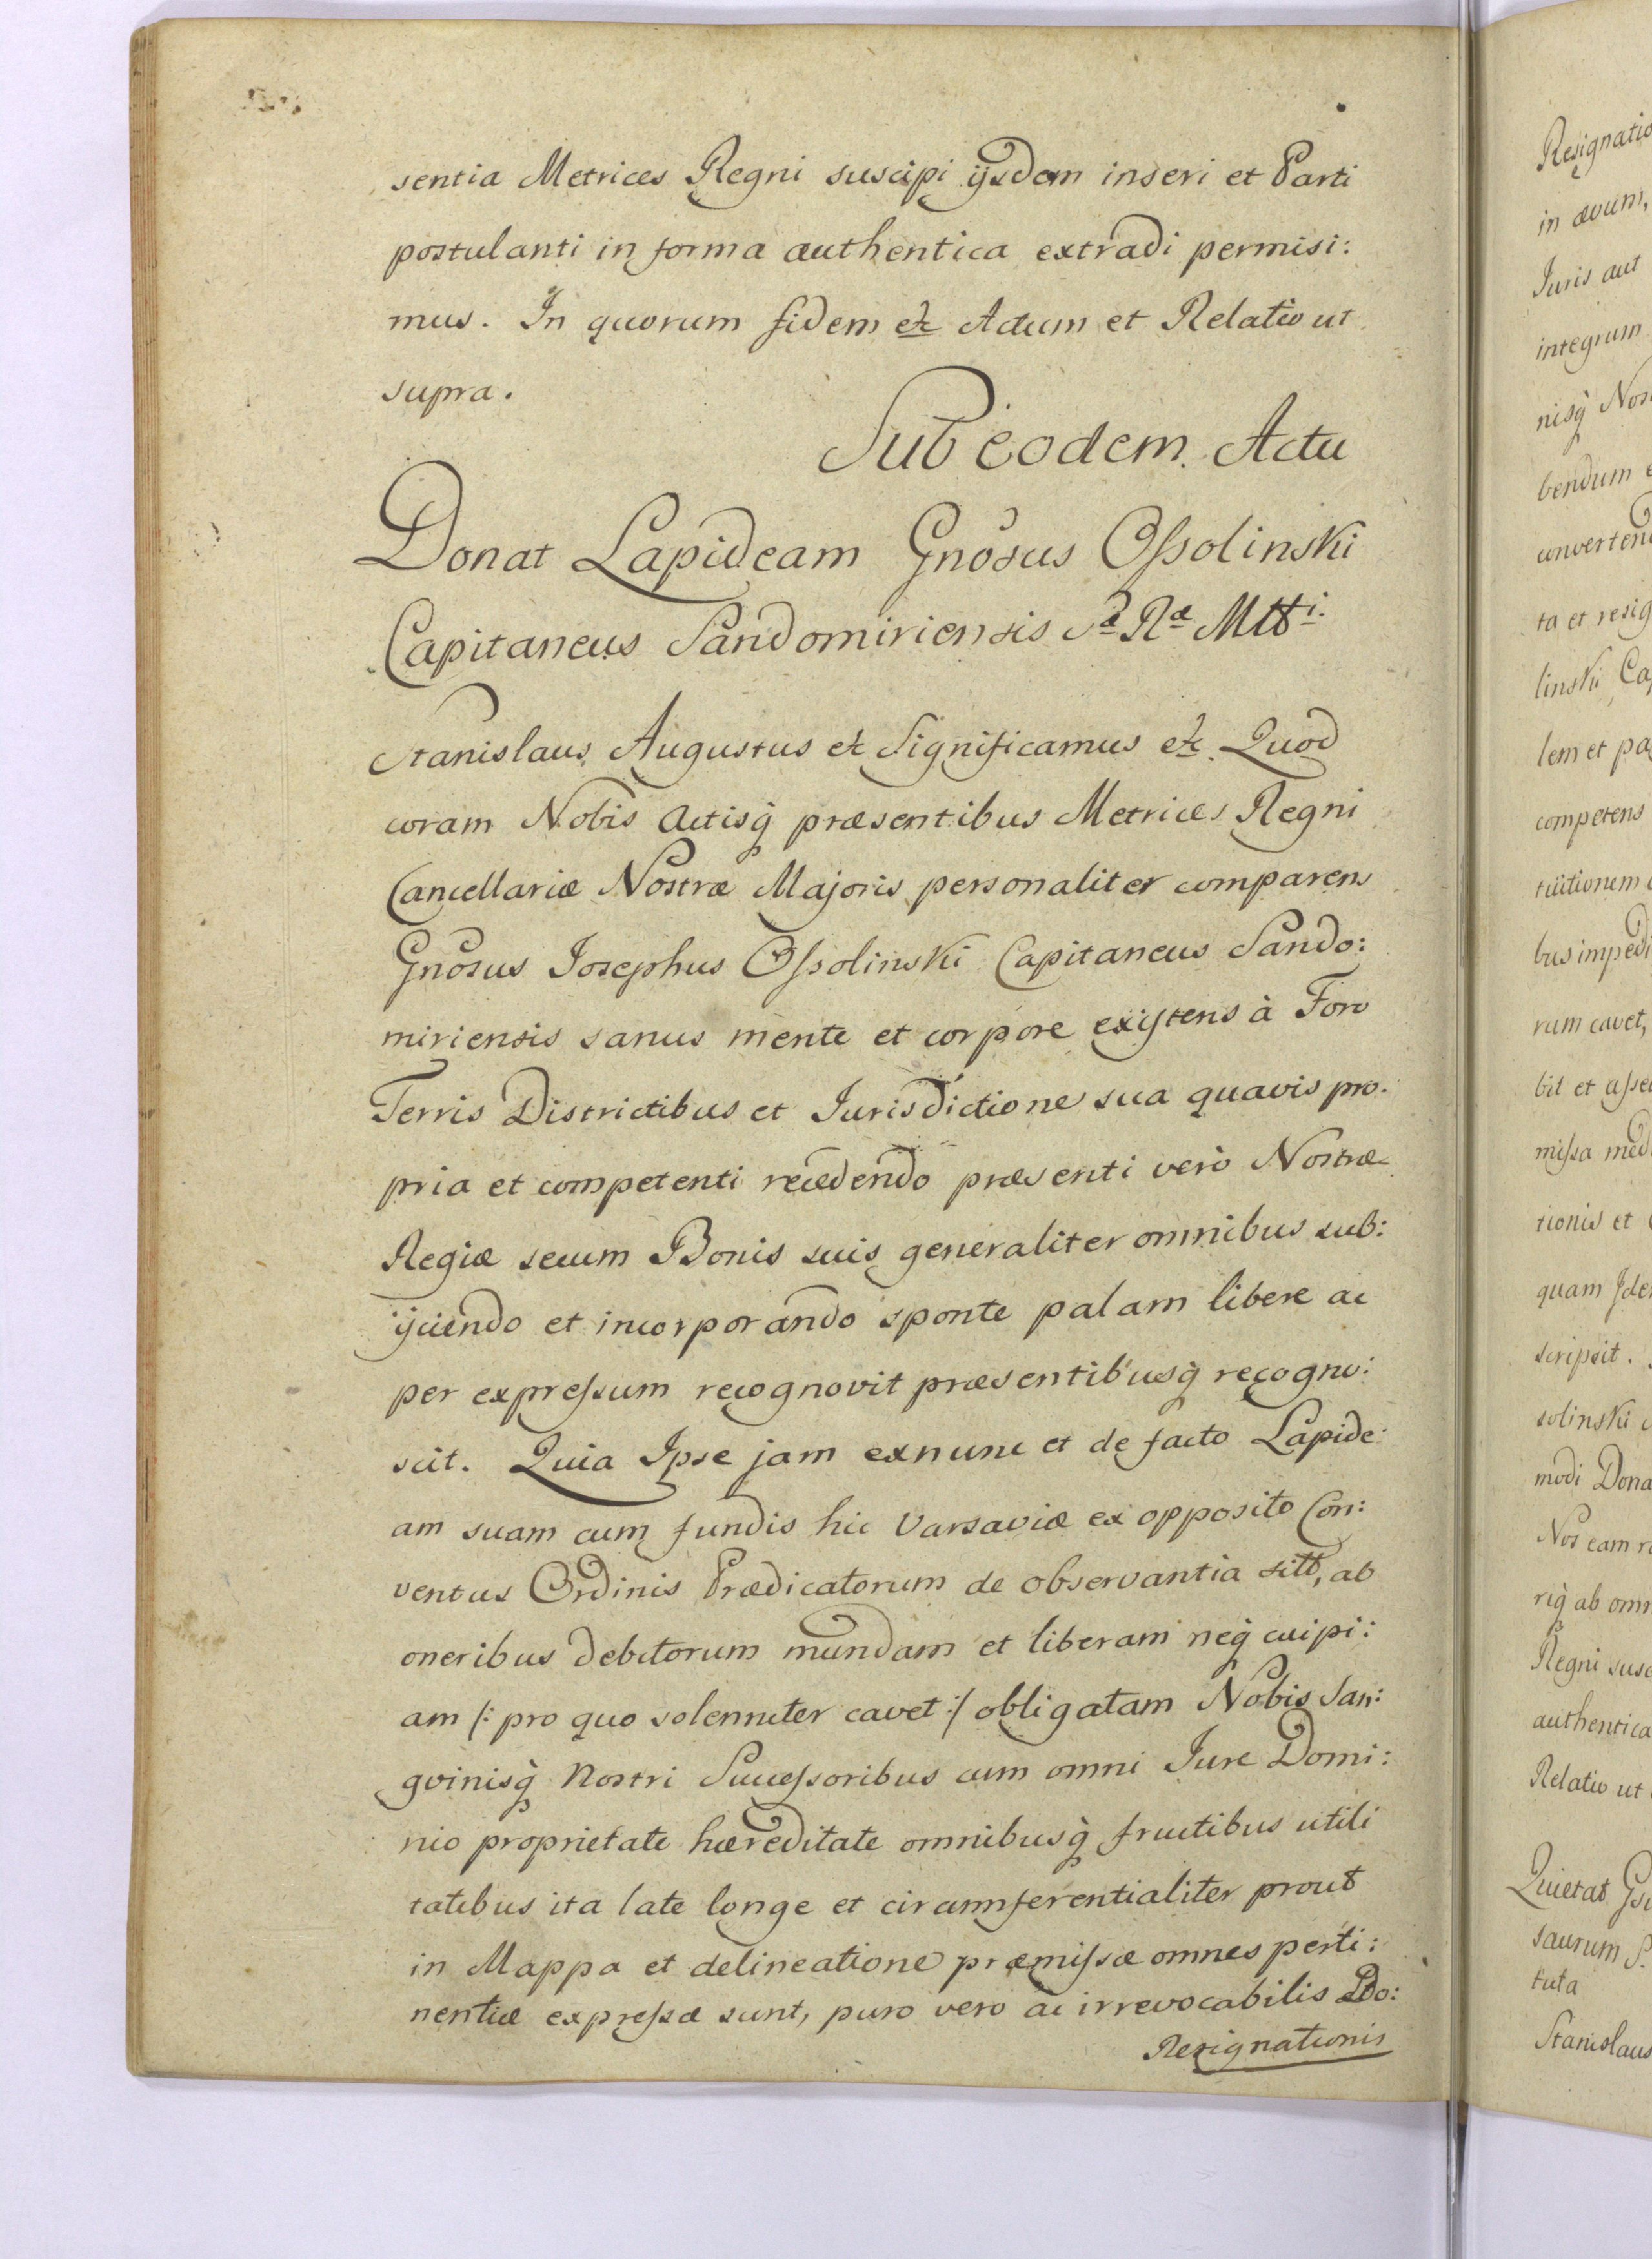 sentia Metrices Regni suscipi ijsdem inseri et Parti
postulanti in forma authentica extradi permisi:
mus. In quorum fidem etc Actum et Relatio ut
supra.
Sub eodem Actu
Donat Lapideam Gnosus Ossolinski
Capitaneus Sandomiriensis Sæ Ræ Mtti.
Stanislaus Augustus etc Significamus etc. Quod
coram Nobis Actisq præsentibus Metrices Regni
Cancellariæ Nostræ Majoris personaliter comparens
Gnosus Josephus Ossolinski Capitaneus Sando:
miriensis sanus mente et corpore existens à Foro
Terris Districtibus et Jurisdictione sua quavis pro.
pria et competenti recedendo præsenti verò Nostræ
Regiæ secum Bonis suis generaliter omnibus sub:
ijciendo et incorporando sponte palam libere ac
per expressum recognovit præsentibusq recogno:
scit. Quia Ipse jam exnunc et de facto Lapide:
am suam cum fundis hic Varsaviæ ex opposito Con:
ventus Ordinis Prædicatorum de observantia sitt, ab
oneribus debitorum mundam et liberam neq cuipi:
am /: pro quo solenniter cavet :/ obligatam Nobis San:
gvinisq Nostri Successoribus cum omni Jure Domi:
nio proprietate hæreditate omnibusq fructibus utili
tatibus ita late longe et circumferentialiter prout
in Mappa et delineatione præmissæ omnes perti:
nentiæ expressæ sunt, puro vero ac irrevocabilis Do:
Resignationis
Resignatio
in ævum,
Juris aut
integrum
nisq
bendum
ta et resig
linski
lem et pa
competens
bus impedi
rum cavet,
bit et
missa
tionis et
quam
scripsit.
solinski
modi Dona
Nos eam
riq ab
Regni
authentica
Relatio ut
Quietat
saurum
tuta
Stanislaus